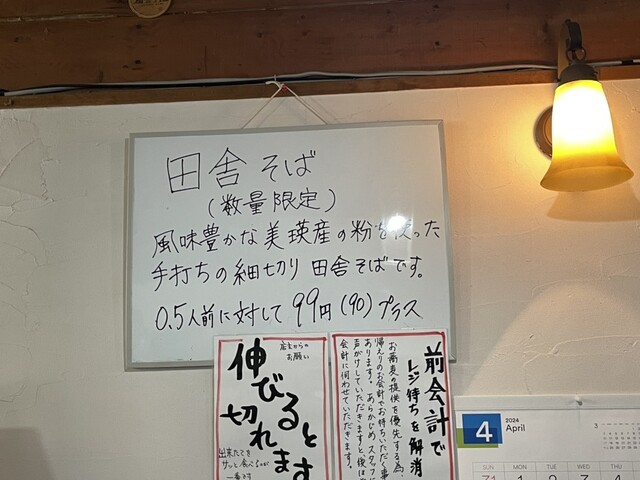 田舎そば
(数量限定)
風味豊かな美瑛産の粉を使った
手打ちの細切り田舎そばです。
0.5人前に対して99円(90)プラス
店主からの
お願い
伸びると
切れます
出来たてを
サッと食べるのが
一番です
前会計で
レジ待ちを解消
お蕎麦の提供を優先する為、
帰えりのお会計でお待ちいただく事
あります。あらかじめスタッフに
声がけしていただきますと、後は
会計に伺わせていただきます。
4
2024
April
3
SUN
MON
TUE
WED
31